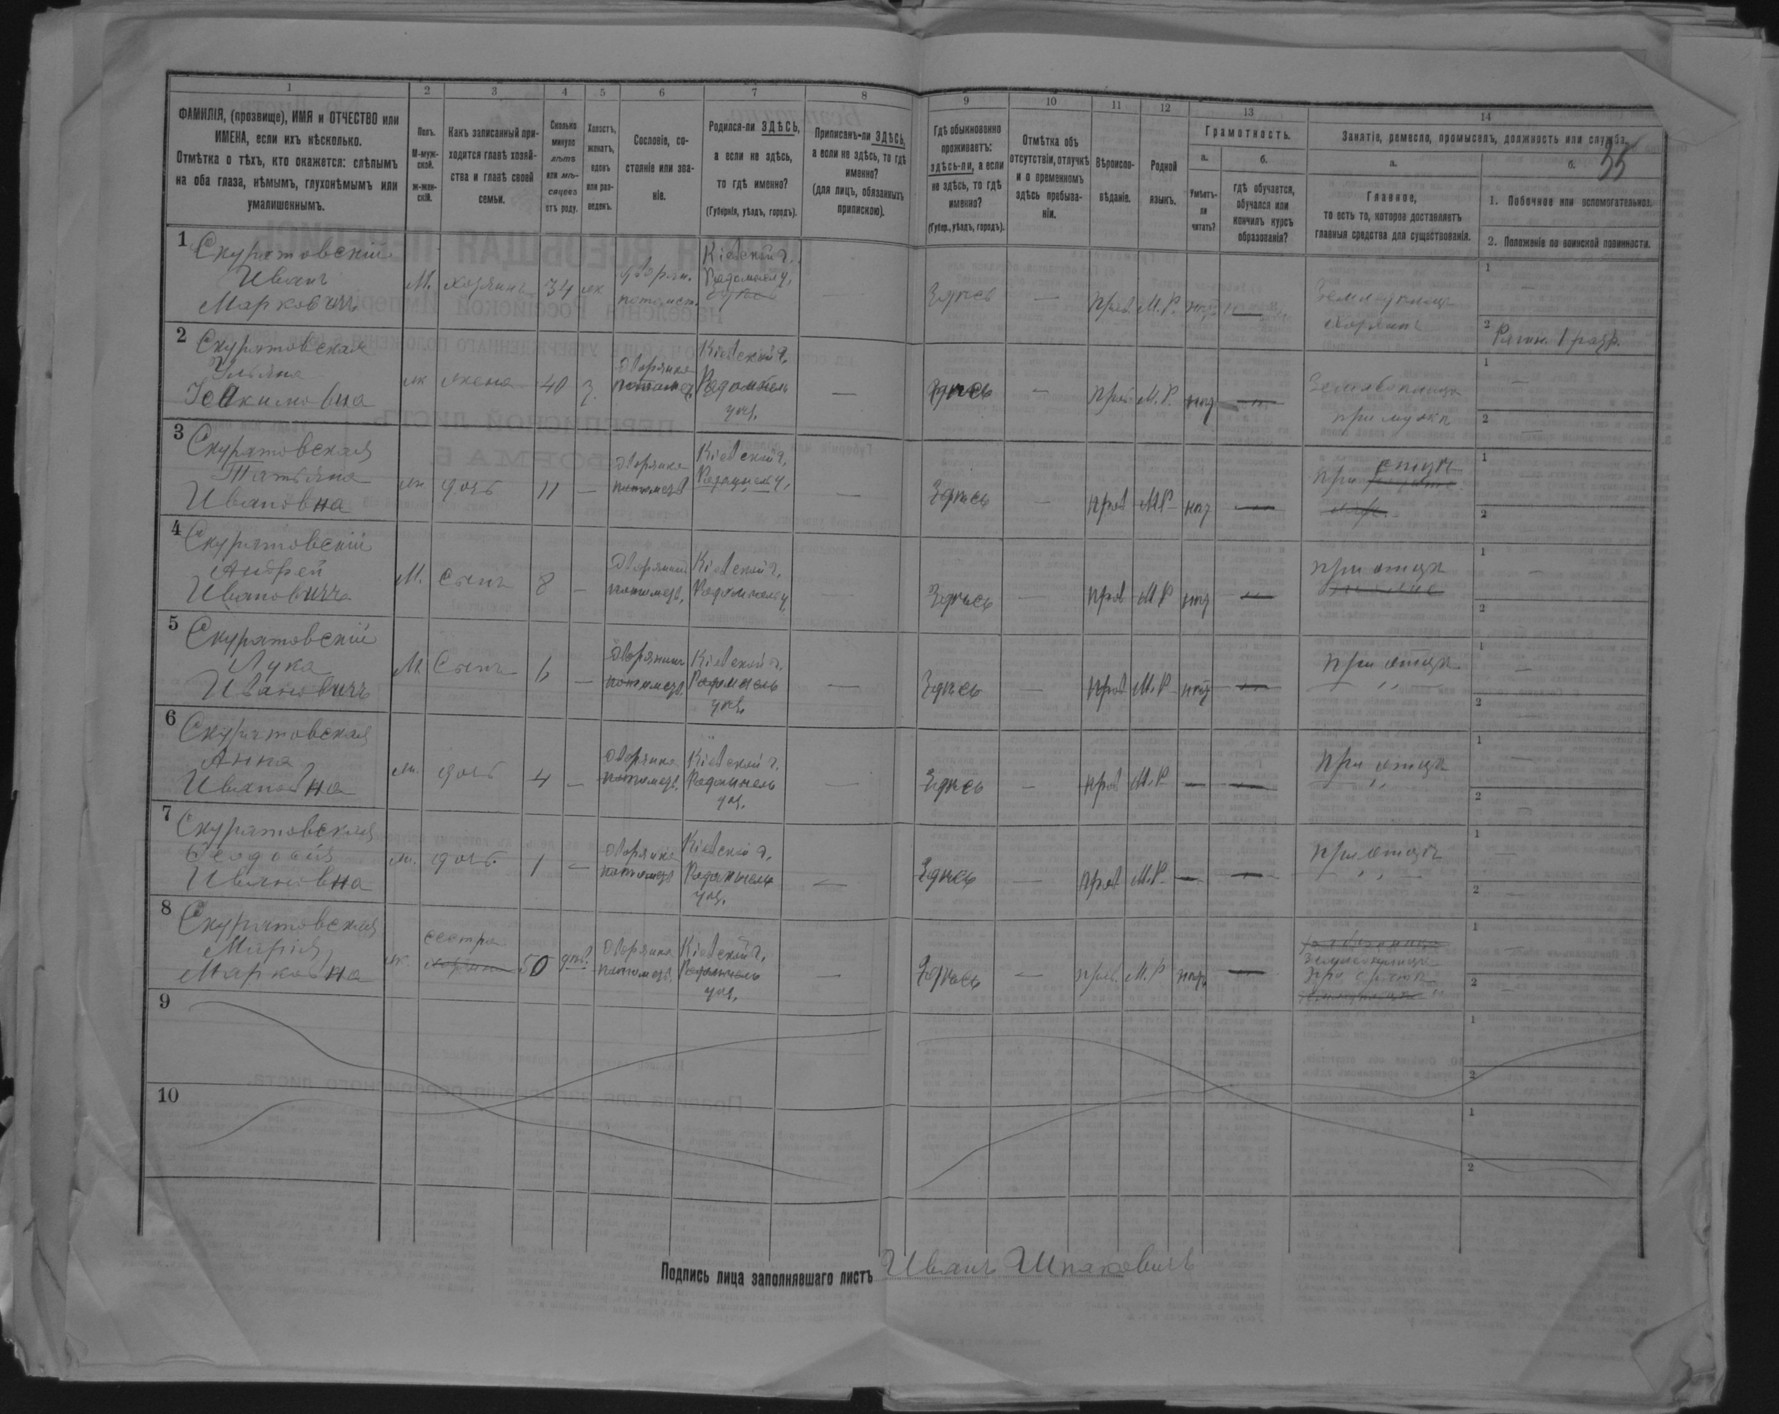 1 2 3 4 5 6 7 8 9 10 11 12 13 14
ФАМИЛІЯ, (прозвище), ИМЯ и ОТЧЕСТВО или
ИМЕНА, если ихъ нѣсколько.
Отмѣтка о тѣхъ, кто окажется: слѣпымъ
на оба глаза, нѣмымъ, глухонѣмымъ или
умалишеннымъ.
Полъ.
М-муж-
ской.
ж-жен-
скій.
Какъ записанный при-
ходится главѣ хозяй-
ства и главѣ своей
семьи.
Сколько
минуло
лѣтъ
или мѣ-
сяцевъ
отъ роду.
Холостъ,
женатъ,
вдовъ
или раз-
веденъ.
Сословіе, со-
стояніе или зва-
ніе.
Родился-ли ЗДѢСЬ,
а если не здѣсь,
то гдѣ именно?
(Губернія, уѣздъ, городъ).
Приписанъ-ли ЗДѢСЬ,
а если не здѣсь, то гдѣ
именно?
(для лицъ, обязанныхъ
припискою).
Гдѣ обыкновенно
проживаетъ:
здѣсь-ли, а если
не здѣсь, то гдѣ
именно?
(Губер., уѣздъ, городъ).
Отмѣтка объ
отсутствіи, отлучкѣ
и о временномъ
здѣсь пребыва-
ніи.
Вѣроиспо-
вѣданіе.
Родной
языкъ.
Грамотность.
а.
Умѣетъ-
ли
читать?
б.
гдѣ обучается,
обучался или
кончилъ курсъ
образованія?
Занятіе, ремесло, промыселъ, должность или служба.
35
а.
Главное,
то есть то, которое доставляетъ
главныя средства для существованія.
б.
1. Побочное или вспомогательное.
2. Положеніе по воинской повинности.
1 Скуратовскій
Иванъ
Марковичъ
М. хозяинъ 34 ж
дворян.
потомств.
Кіевской г.
Радомысл у.
Здѣсь
— прав. М.Р. нѣт
Земледѣлецъ
хозяинъ
1 —
2 Ратн. 1 разр.
2 Скуратовская
Ульяна
Іоакимовна
ж жена 40 з.
дворянка
потомст.
Кіевской г.
Радомысль
уѣз.
— здѣсь — прав М.Р. нѣт —
Земледѣлица
при мужѣ
1 —
2 —
3 Скуратовская
Татьяна
Ивановна
ж дочь 11 —
дворянка
потомст
Кіевской г.
Радомысл у.
— Здѣсь — прав М.Р. нѣт —
при отцѣ
1
2
4 Скуратовскій
Андрей
Ивановичъ
М. сынъ 8 —
дворянин
потомст.
Кіевской г.
Радомысль у
— Здѣсь — прав М.Р нѣт —
при отцѣ
1 —
2
5 Скуратовскій
Лука
Ивановичъ
М Сынъ 6 —
дворянин
потомст.
Кіевской г.
Радомысль
уѣз.
— Здѣсь — прав М.Р нѣт —
при отцѣ
„
1 —
2 —
6 Скуратовская
Анна
Ивановна
ж. дочь 4 —
дворянка
потомст.
Кіевской г.
Радомысль
уѣз.
— Здѣсь — прав М.Р — —
при отцѣ
„
1 —
2 —
7 Скуратовская
Ивановна
ж. дочь 1 —
дворянка
потомст
Кіевской г.
Радомысль
уѣз.
— Здѣсь — прав М.Р — —
при отцѣ
„
1 —
2 —
8 Скуратовская
Марія
Марковна
ж. сестра
хозяина
50 дѣв.
дворянка
потомст.
Кіевской г.
Радомысль
уѣз.
— Здѣсь — прав. М.Р нѣт —
Земледѣлица
при братѣ
1 —
2 —
9
1
2
10
1
2
Подпись лица заполнявшаго листъ Иванъ Шпаковичъ